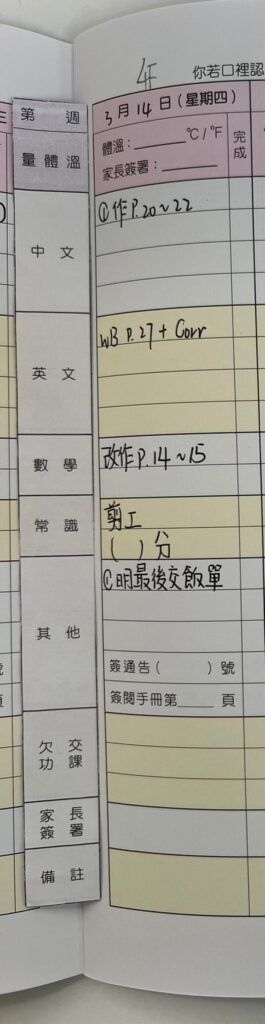 4F
你若口裡認
第　週
3月14日(星期四)
量體溫
體溫：______℃/℉
家長簽署：______
完成
中文
①作P.20~22
英文
WB P.27 + Corr
數學
改作P.14~15
常識
剪工
(　)分
其他
©明最後交飯單
簽通告(　　)號
簽閱手冊第____頁
欠交功課
家長簽署
備註